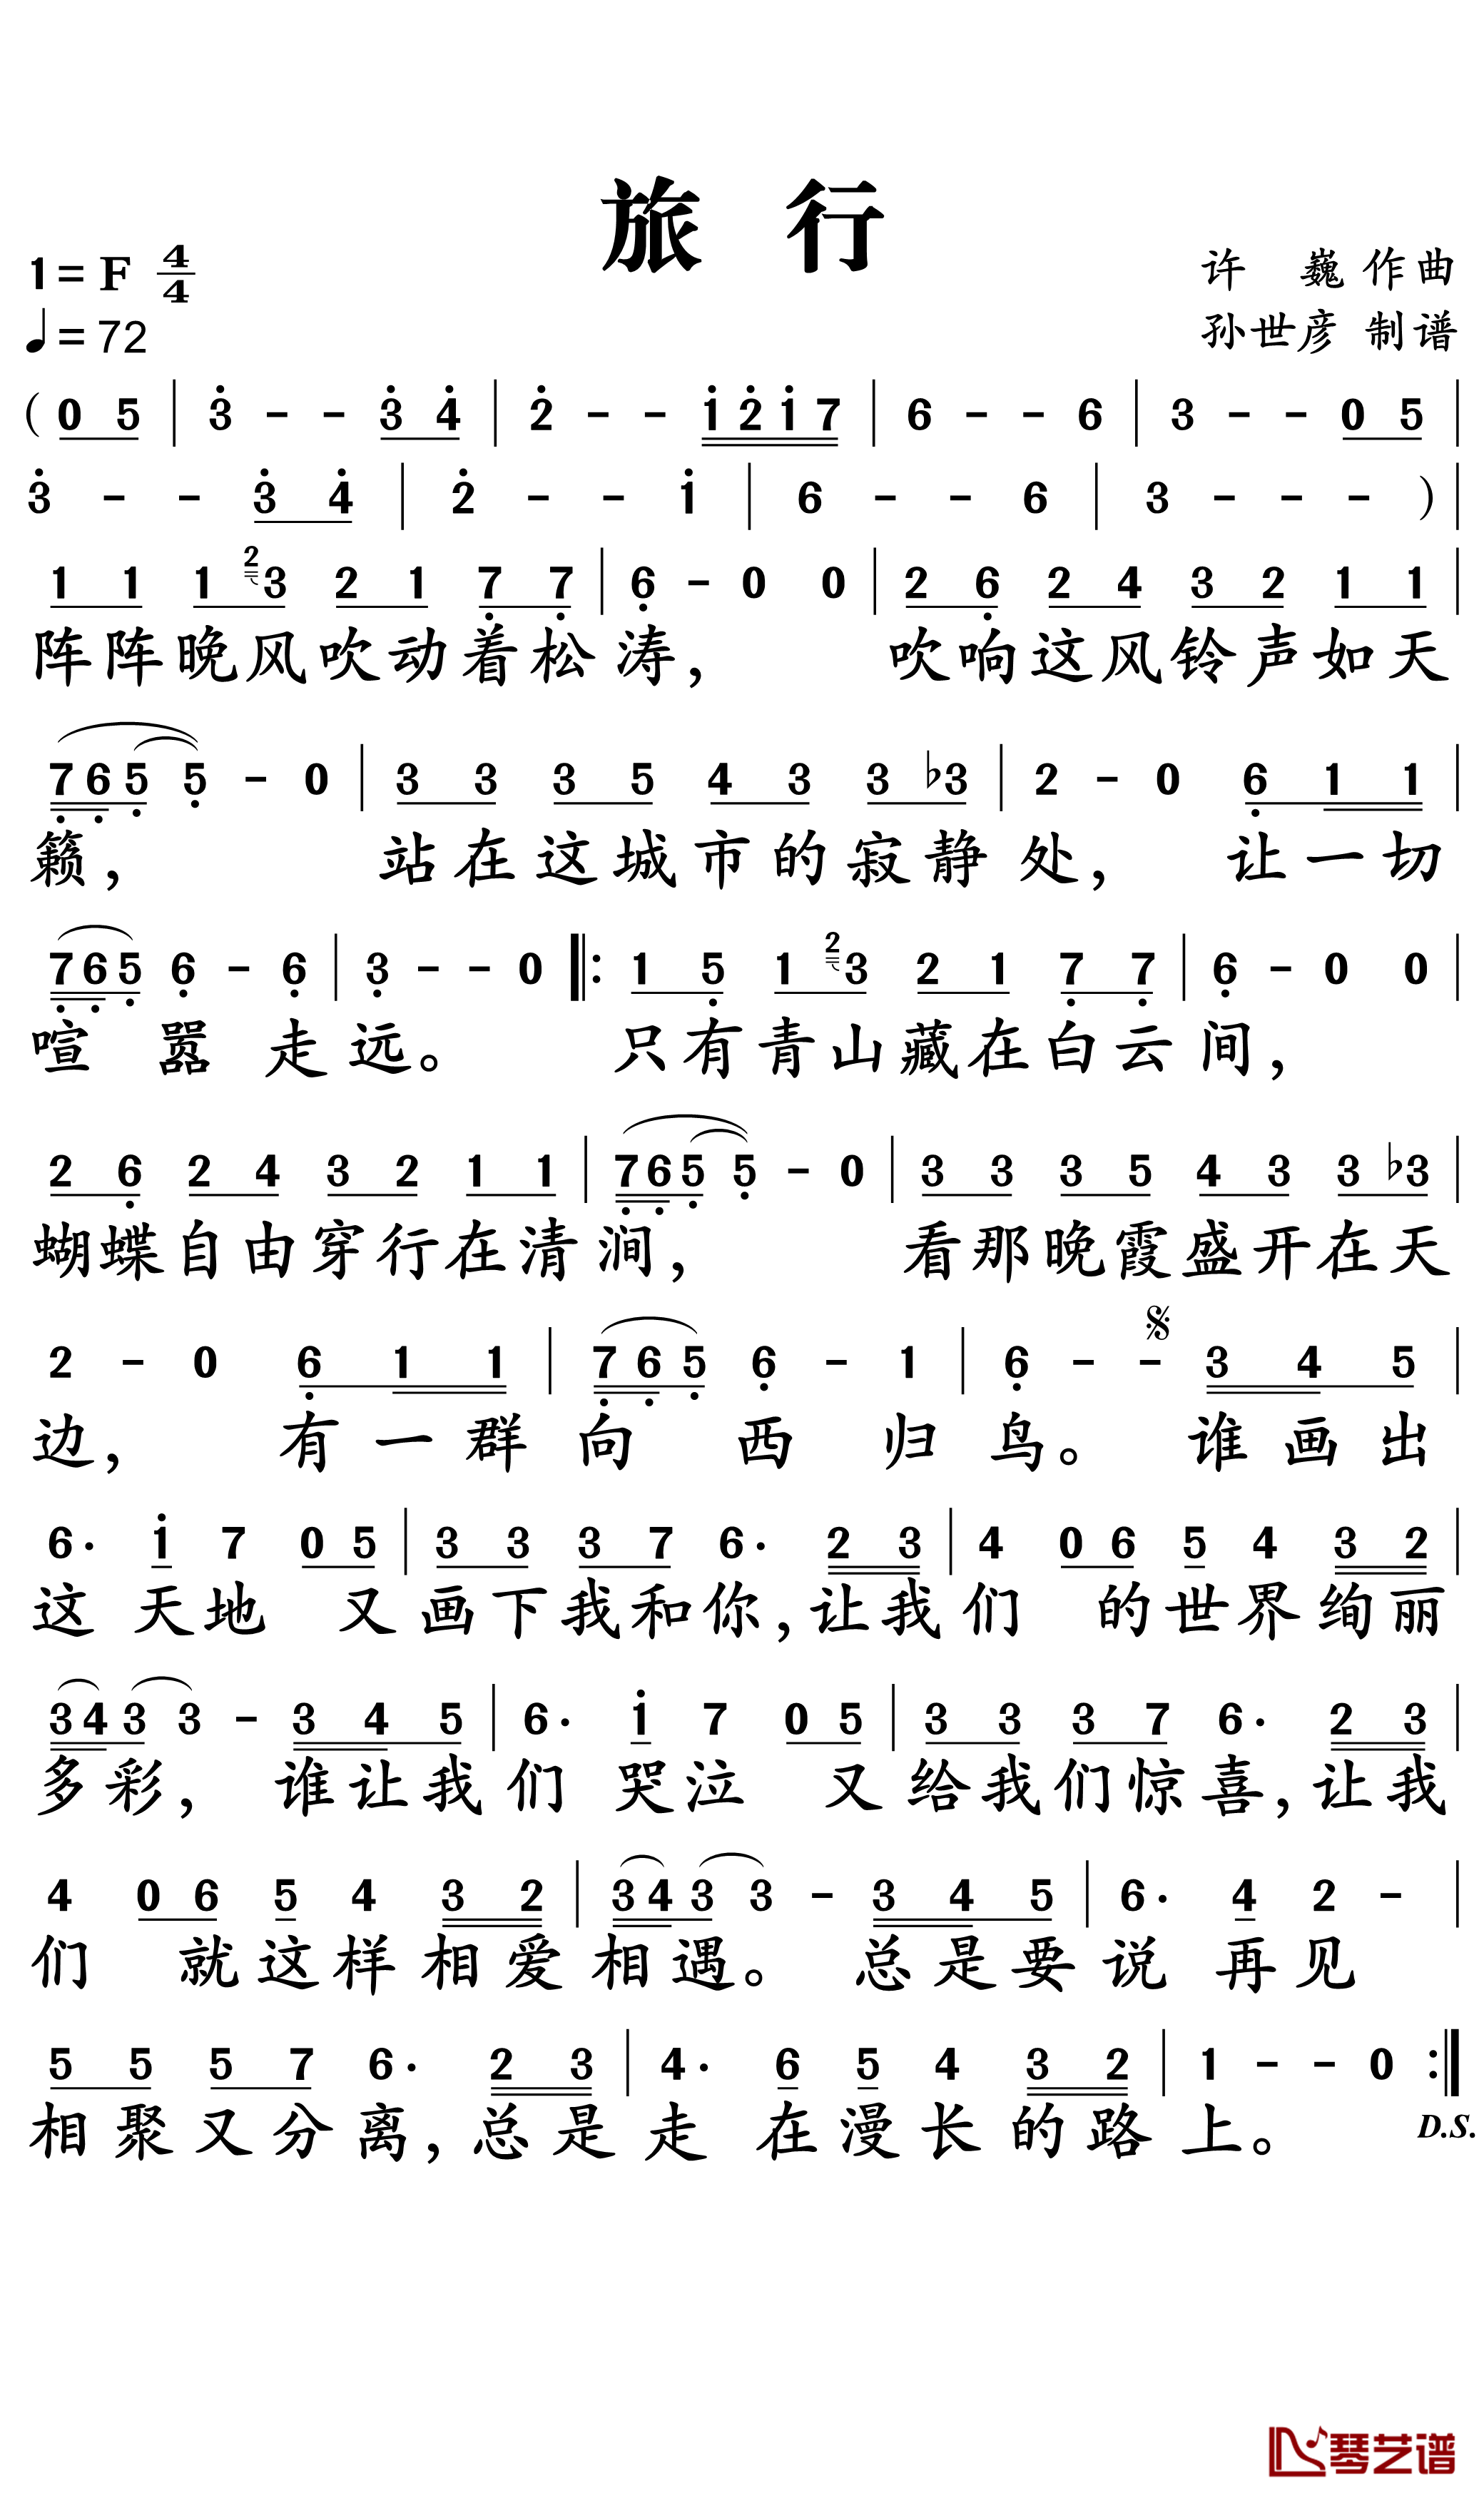 旅 行
1=F 4/4
许 巍 作曲
♩=72
孙世彦 制谱
(0 5 | 3 - - 3 4 | 2 - - 1 2 1 7 | 6 - - 6 | 3 - - 0 5 |
3 - - 3 4 | 2 - - 1 | 6 - - 6 | 3 - - - ) |
1 1 1 2 3 2 1 7 7 | 6 - 0 0 | 2 6 2 4 3 2 1 1 |
阵阵晚风吹动着松涛, 吹响这风铃声如天
7 6 5 5 - 0 | 3 3 3 5 4 3 3 ♭3 | 2 - 0 6 1 1 |
籁, 站在这城市的寂静处, 让一切
7 6 5 6 - 6 | 3 - - 0 |: 1 5 1 2 3 2 1 7 7 | 6 - 0 0 |
喧嚣走远。 只有青山藏在白云间,
2 6 2 4 3 2 1 1 | 7 6 5 5 - 0 | 3 3 3 5 4 3 3 ♭3 |
蝴蝶自由穿行在清涧, 看那晚霞盛开在天
2 - 0 6 1 1 | 7 6 5 6 - 1 | 6 - - 3 4 5 |
边, 有一群向西归鸟。 谁画出
6· 1 7 0 5 | 3 3 3 7 6· 2 3 | 4 0 6 5 4 3 2 |
这天地 又画下我和你,让我们 的世界绚丽
3 4 3 3 - 3 4 5 | 6· 1 7 0 5 | 3 3 3 7 6· 2 3 |
多彩, 谁让我们哭泣 又给我们惊喜,让我
4 0 6 5 4 3 2 | 3 4 3 3 - 3 4 5 | 6· 4 2 - |
们 就这样相爱相遇。 总是要说再见
5 5 5 7 6· 2 3 | 4· 6 5 4 3 2 | 1 - - 0 :|
相聚又分离,总是走 在漫长的路上。 D.S.
琴艺谱